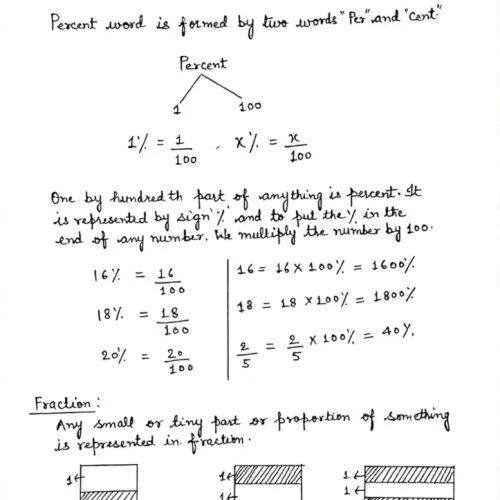 Percent word is formed by two words "Per" and "Cent."
Percent
1 100
1% = 1/100 , x% = x/100
One by hundredth part of anything is percent. It
is represented by sign '%' and to put the % in the
end of any number. We multiply the number by 100.
16% = 16/100
18% = 18/100
20% = 20/100
16 = 16 × 100% = 1600%
18 = 18 × 100% = 1800%
2/5 = 2/5 × 100% = 40%.
Fraction :
Any small or tiny part or proportion of something
is represented in fraction.
1← 1← 1←
1←